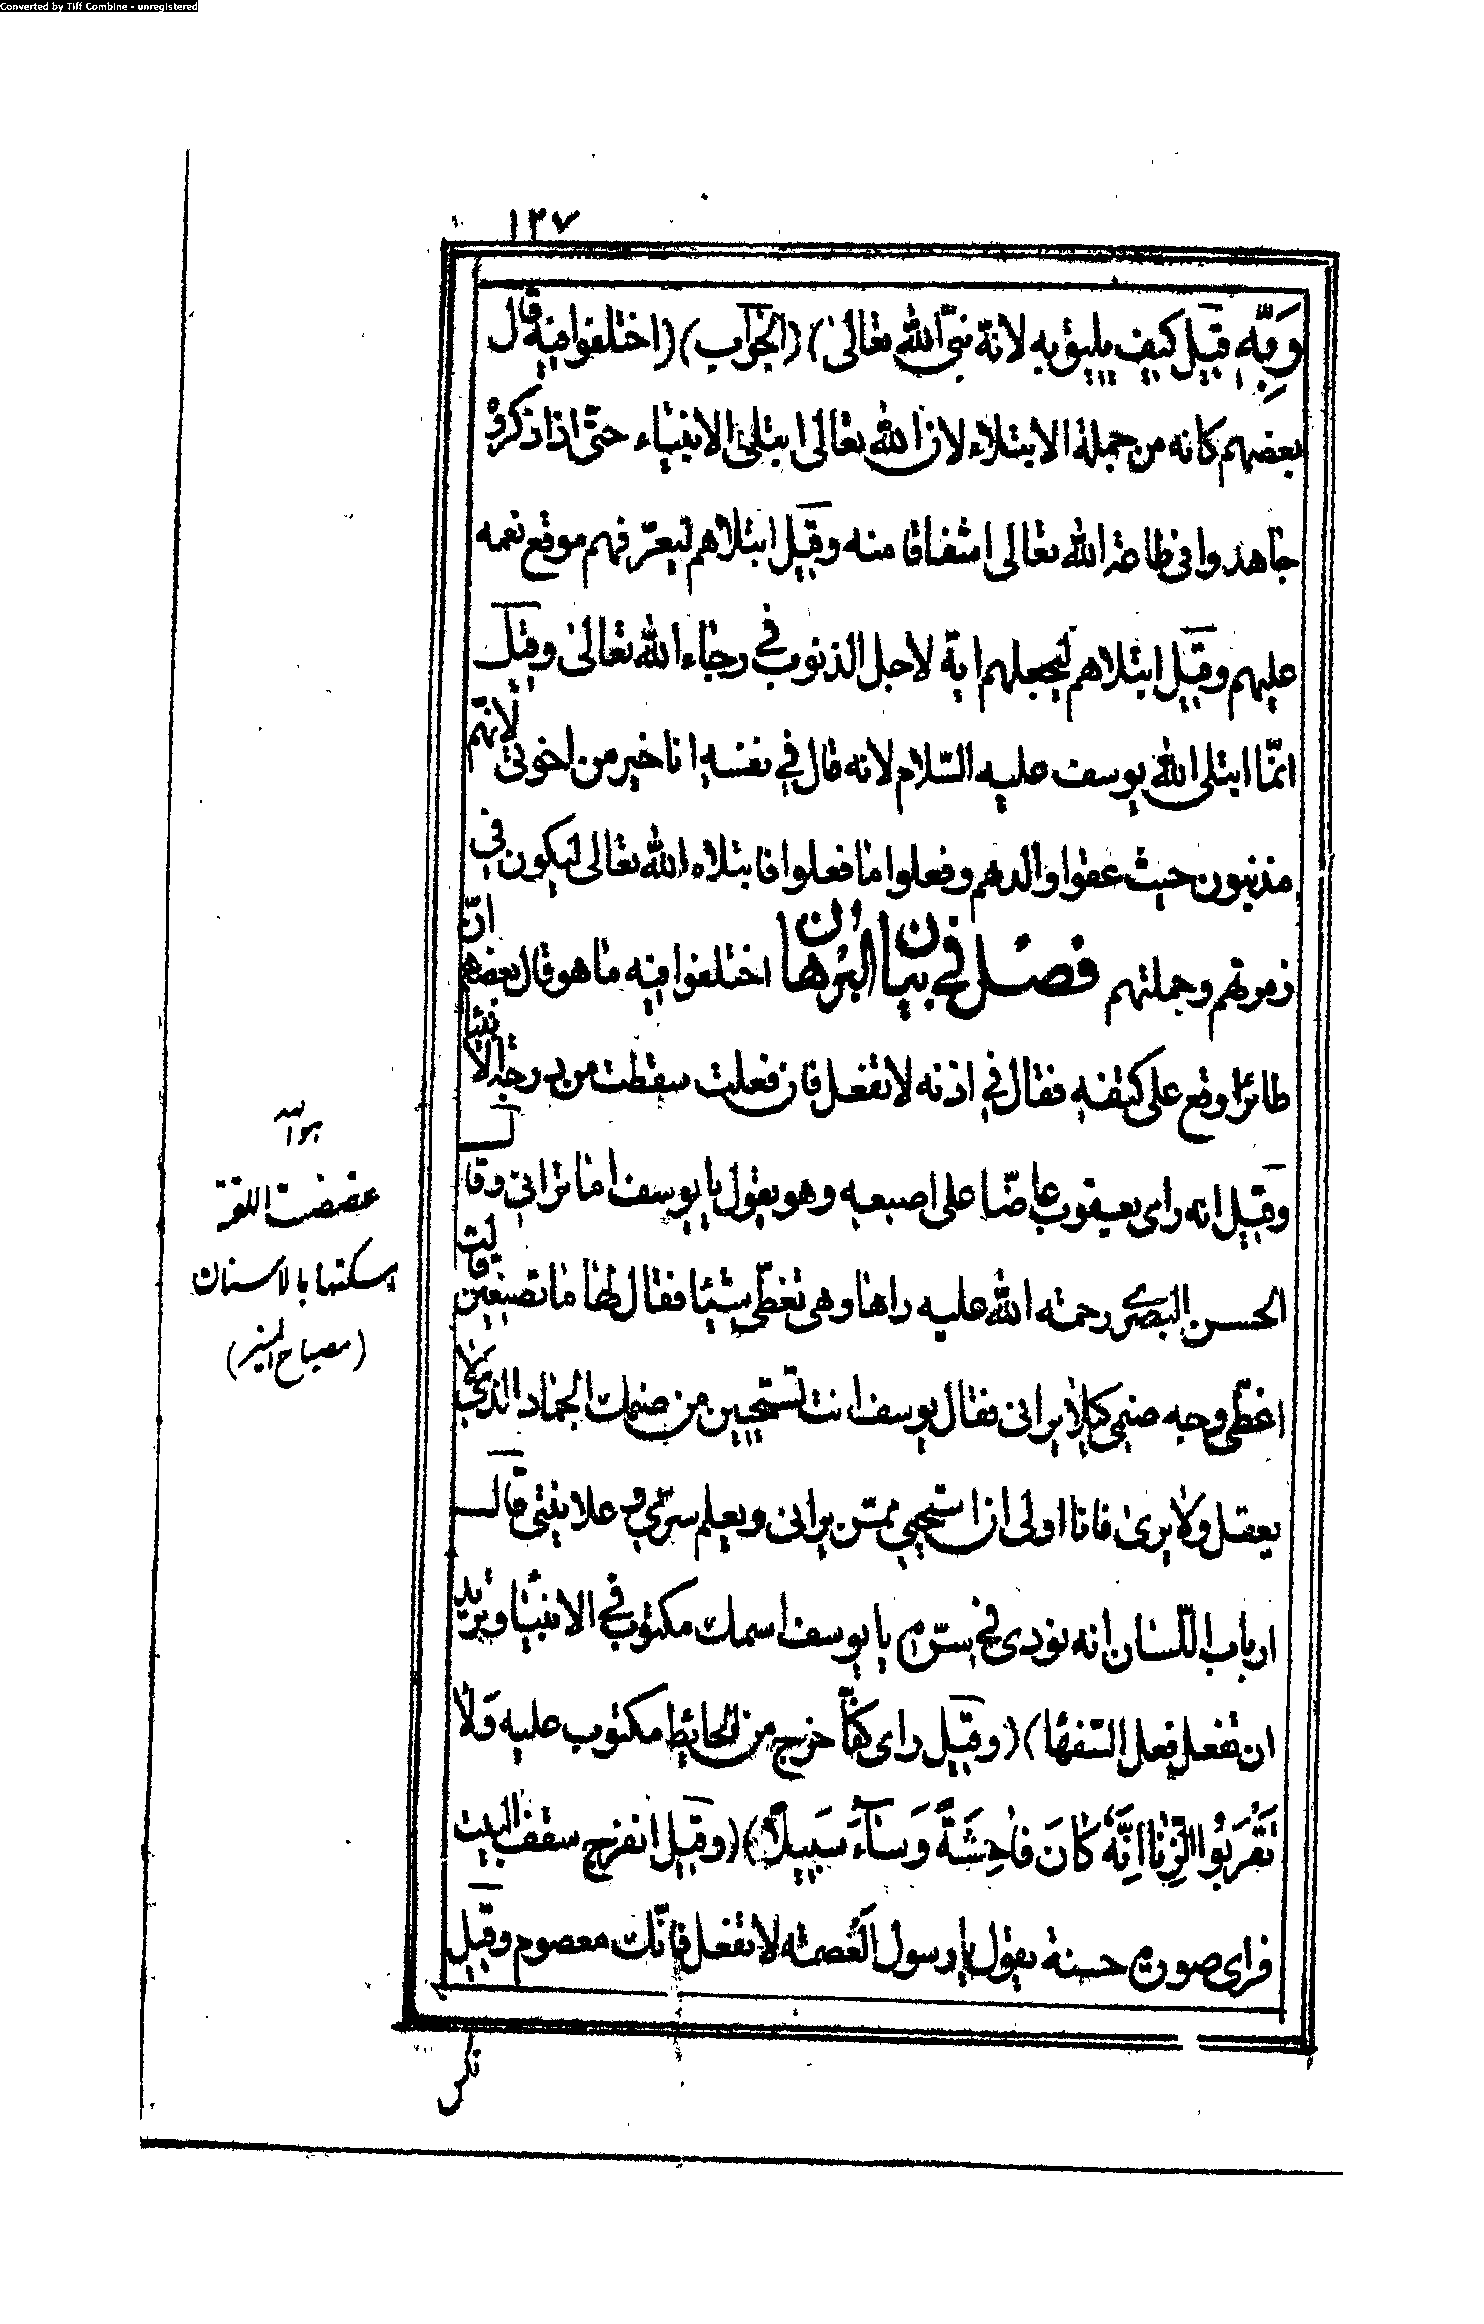 Converted by Tiff Combine - unregistered
١٣٧
وَبِّهِ قيل كيف يليق به لانّه نبىّ الله تعالىٰ) (الجواب) (اختلفوا فيه قال
بعضهم كانه من جملة الابتلاء لان الله تعالى ابتلىٰ الانبياء حتّى اذا ذكروْ
جاهدوا فى طاعة الله تعالى اشفاقا منه وقيل ابتلاهم ليعرّفهم موقع نعمه
عليهم وقيل ابتلاهم ليجعلهم اية لاجل الذنوب فى رجاء الله تعالىٰ وقيل
انّما ابتلى الله يوسف عليه السّلام لانه قال فى نفسه انا خير من اخوتى لانّهم
مذنبون حيث عقوا والدهم وفعلوا ما فعلوا فابتلاه الله تعالى ليكون فى
زمرتهم وجملتهم فصل فى بيان البُرهان اختلفوا فيه ما هو قال بعضهم انّ
طائرًا وقع على كتفه فقال فى اذنه لا تفعل فان فعلت سقطت من درجة الانبيا
وقيل انه راى يعقوب عاضّا على اصبعه وهو يقول يا يوسف اما ترانى وقال
الحسن البصرى رحمته الله عليه راها وهى تغطّى شيئا فقال لها ما تصنعين قالت
اغطّى وجه صنمى كيلا يرانى فقال يوسف انت تستحيين من صنمك الجماد الذى لا
يعقل ولا يرىٰ فانا اولى ان استحيى ممّن يرانى ويعلم سرّى و علانيتى قال
ارباب اللّسان انه نودى فى سرّه يا يوسف اسمك مكتوب فى الانبيا وتريد
ان تفعل فعل السّفها) (وقيل راى كفّا خرج من الحائط مكتوب عليه وَلَا
تَقْرَبُوا الزِّنَا اِنَّهُ كَانَ فَاحِشَةً وَسَآءَ سَبِيلًا) (وقيل انفرج سقف البيت
فراى صورة حسنة يقول يا رسول العُصمته لا تفعل فانّك معصوم وقيل
نكس
هو الله
عضضت اللقمة
مسكتها بالاسنان
(مصباح المنير)